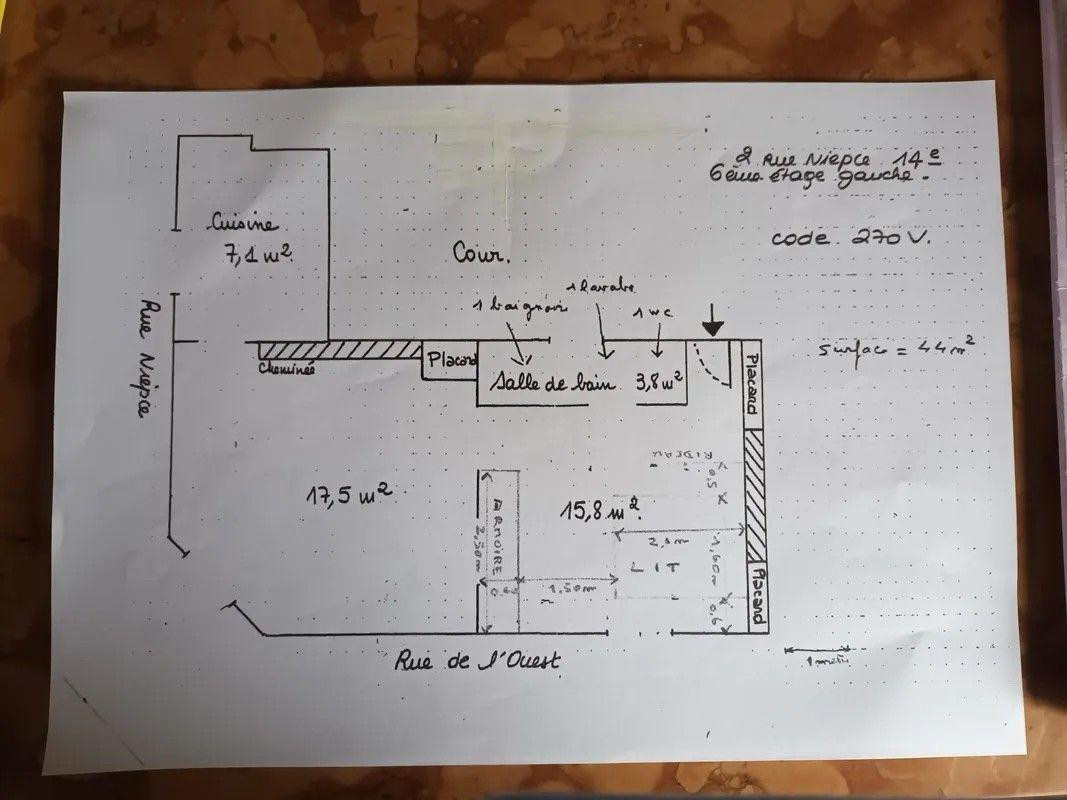 2 Rue Niepce 14e
6ème étage gauche.
code 270V.
Cuisine
7,1 m²
Cour.
1 lavabo
1 baignoire
1 wc
Rue Niepce
surface = 44 m²
Cheminée
Placard
Salle de bain 3,8 m²
Placard
RIDEAU
0,5
17,5 m²
15,8 m²
ARMOIRE
2,50m
2,1m
1,60m
LIT
1,50m
0,6
Placard
Rue de l'Ouest
1 mètre